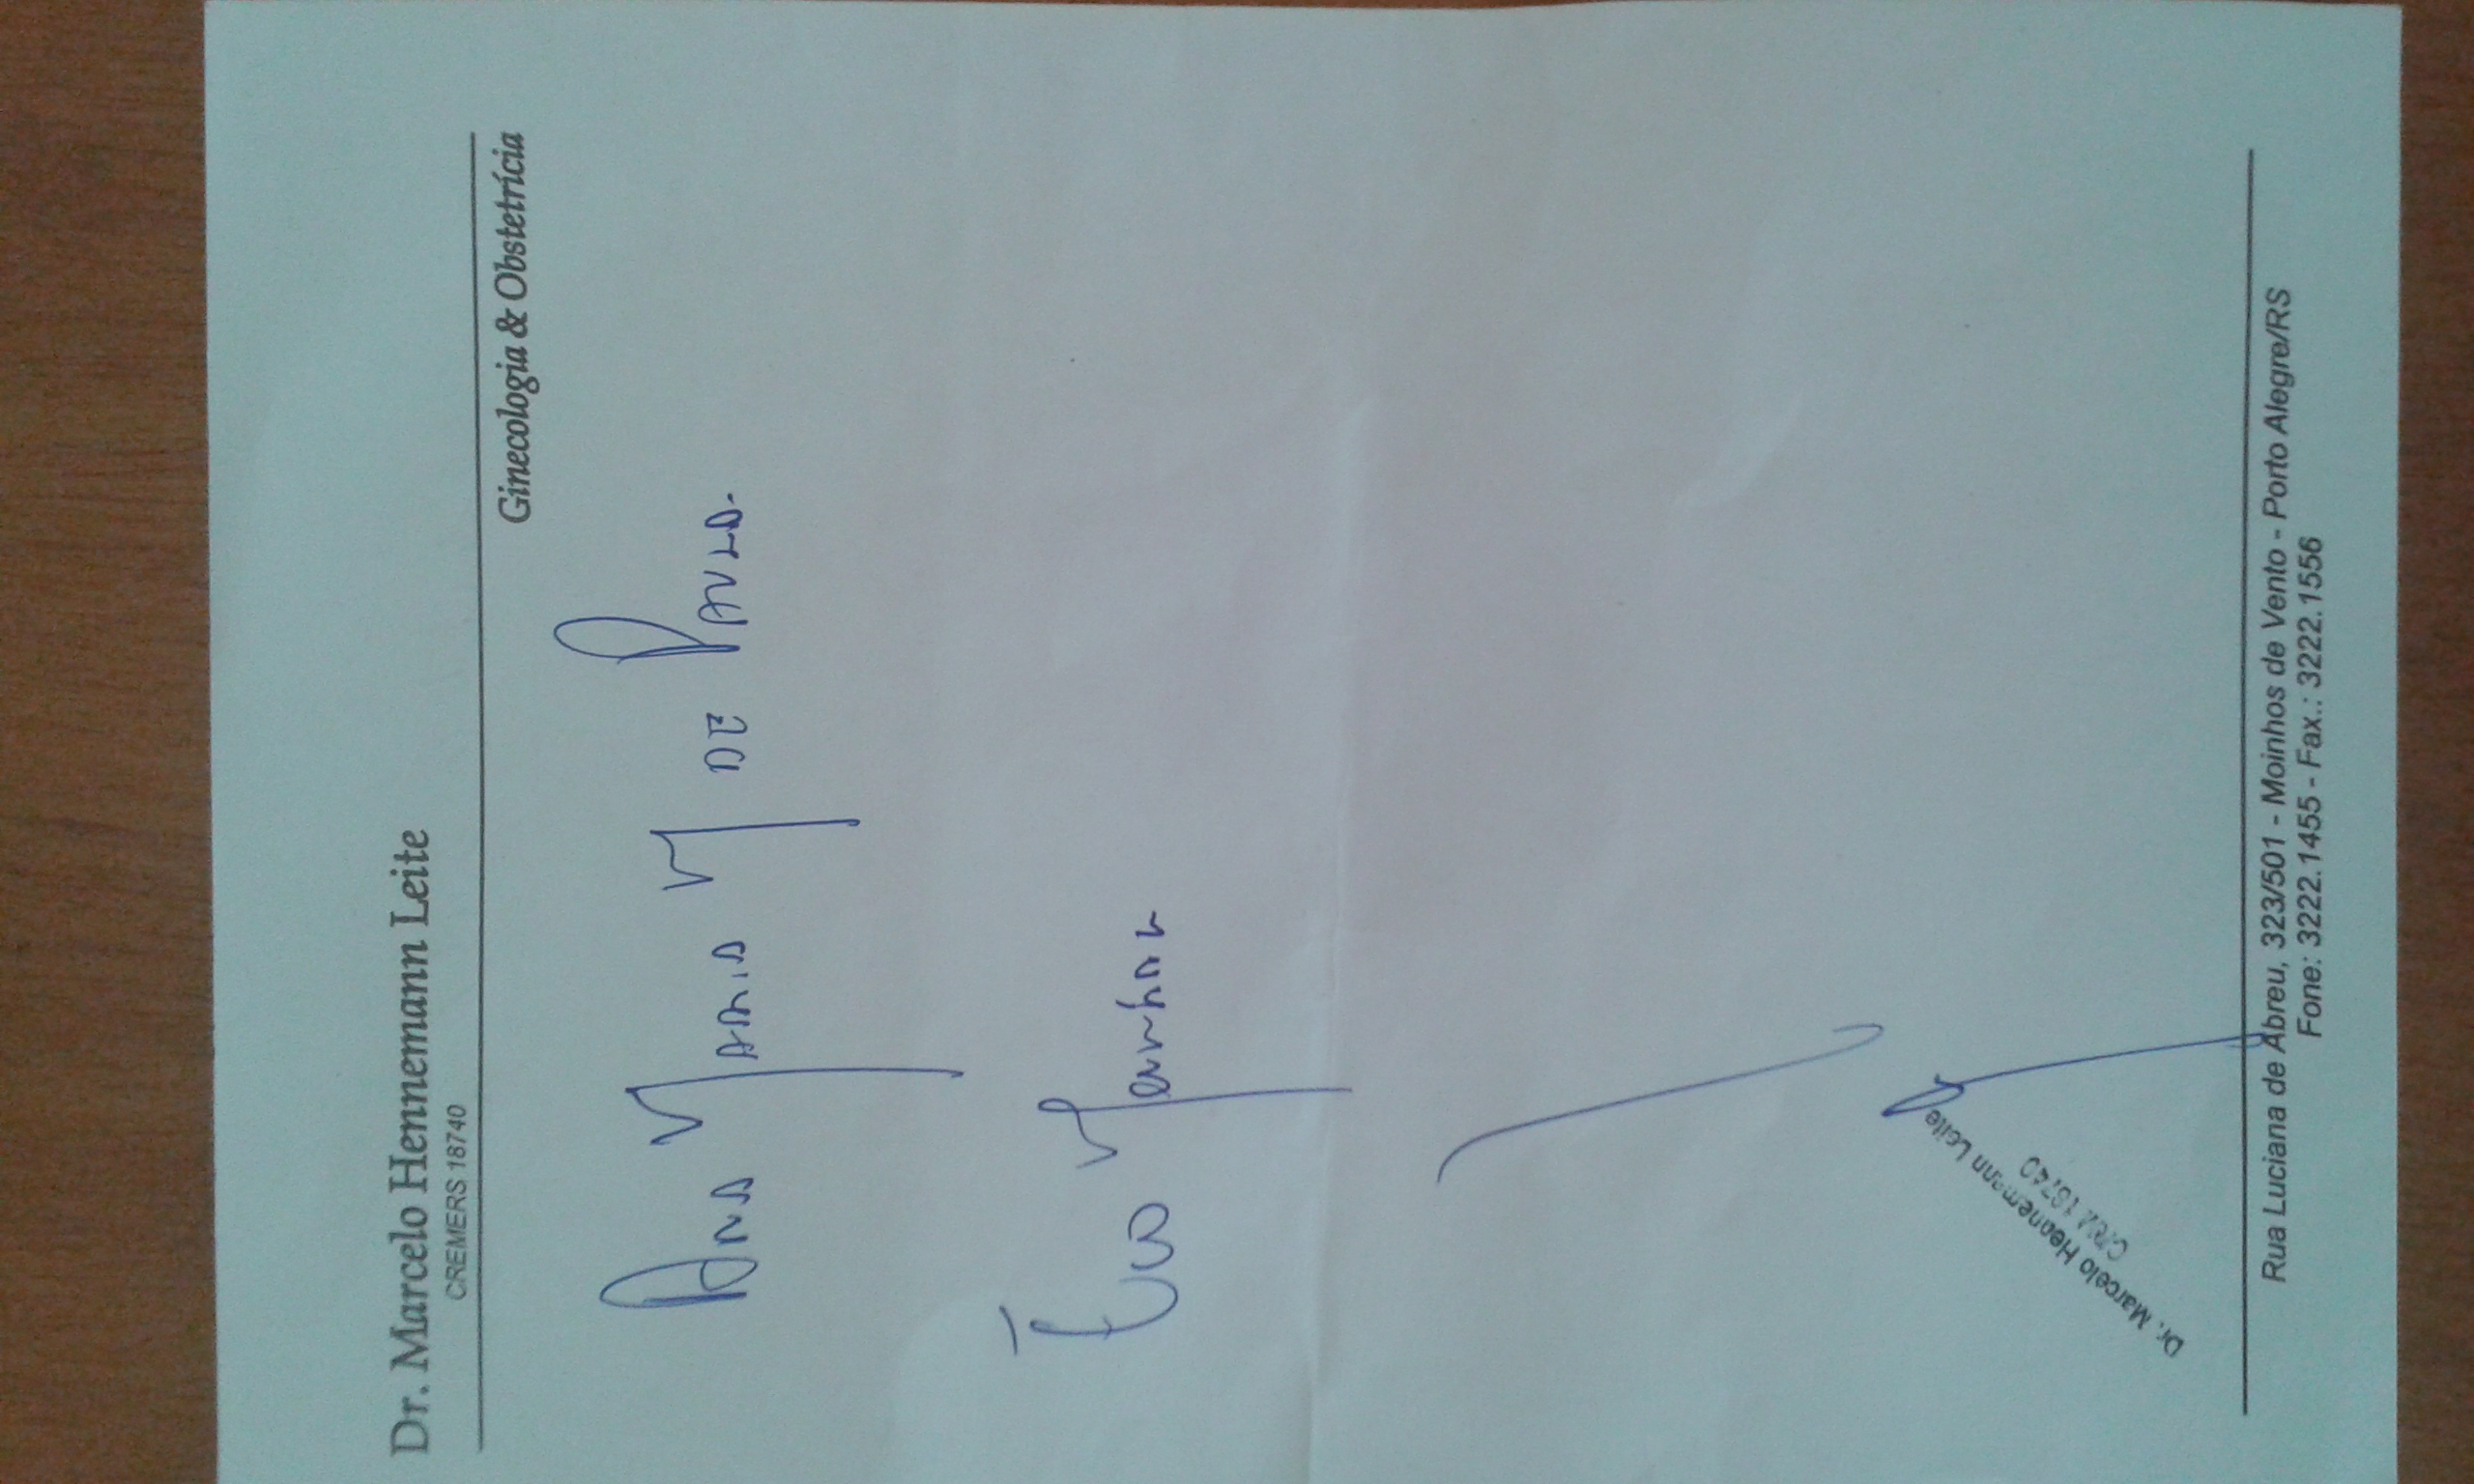 Dr. Marcelo Hennemann Leite
CREMERS 18740
Ginecologia & Obstetrícia
Ana Maria M de Paula.
Eco
Dr. Marcelo Hennemann Leite
CRM 18740
Rua Luciana de Abreu, 323/501 - Moinhos de Vento - Porto Alegre/RS
Fone: 3222.1455 - Fax.: 3222.1556